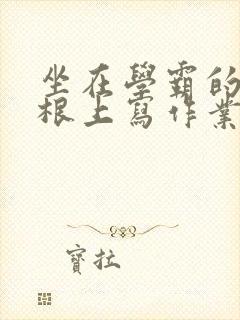 坐在學霸的
根上寫作業
寶拉